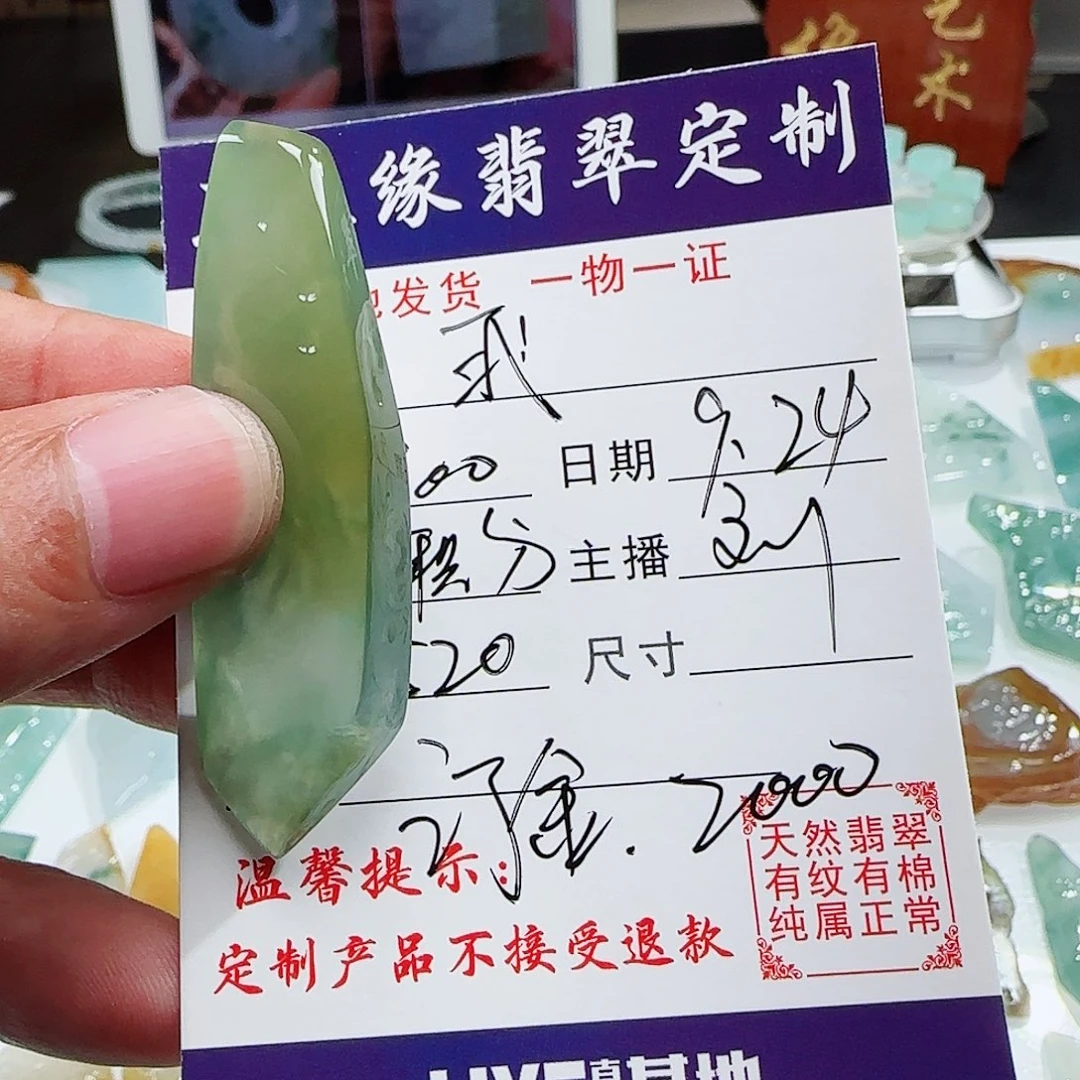 艺
术
缘翡翠定制
发货 一物一证
00 日期 9.24
分 主播
20 尺寸
定金. 2000
温馨提示:
定制产品不接受退款
天然翡翠
有纹有棉
纯属正常
基地